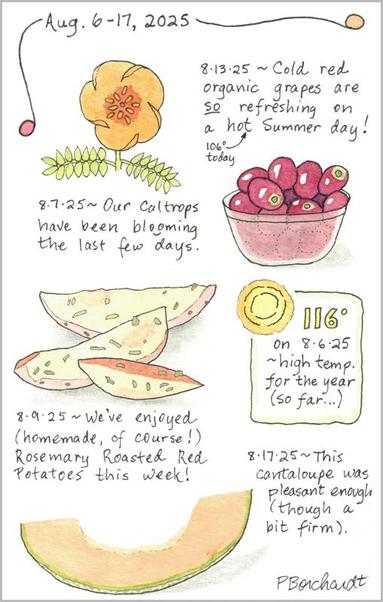 Aug. 6-17, 2025
8·13·25 ~ Cold red
organic grapes are
so refreshing on
a hot Summer day!
106°
today
8·7·25 ~ Our Caltrops
have been blooming
the last few days.
116°
on 8·6·25
~ high temp.
for the year
(so far...)
8·9·25 ~ We've enjoyed
(homemade, of course!)
Rosemary Roasted Red
Potatoes this week!
8·17·25 ~ This
cantaloupe was
pleasant enough
(though a
bit firm).
PBorchardt